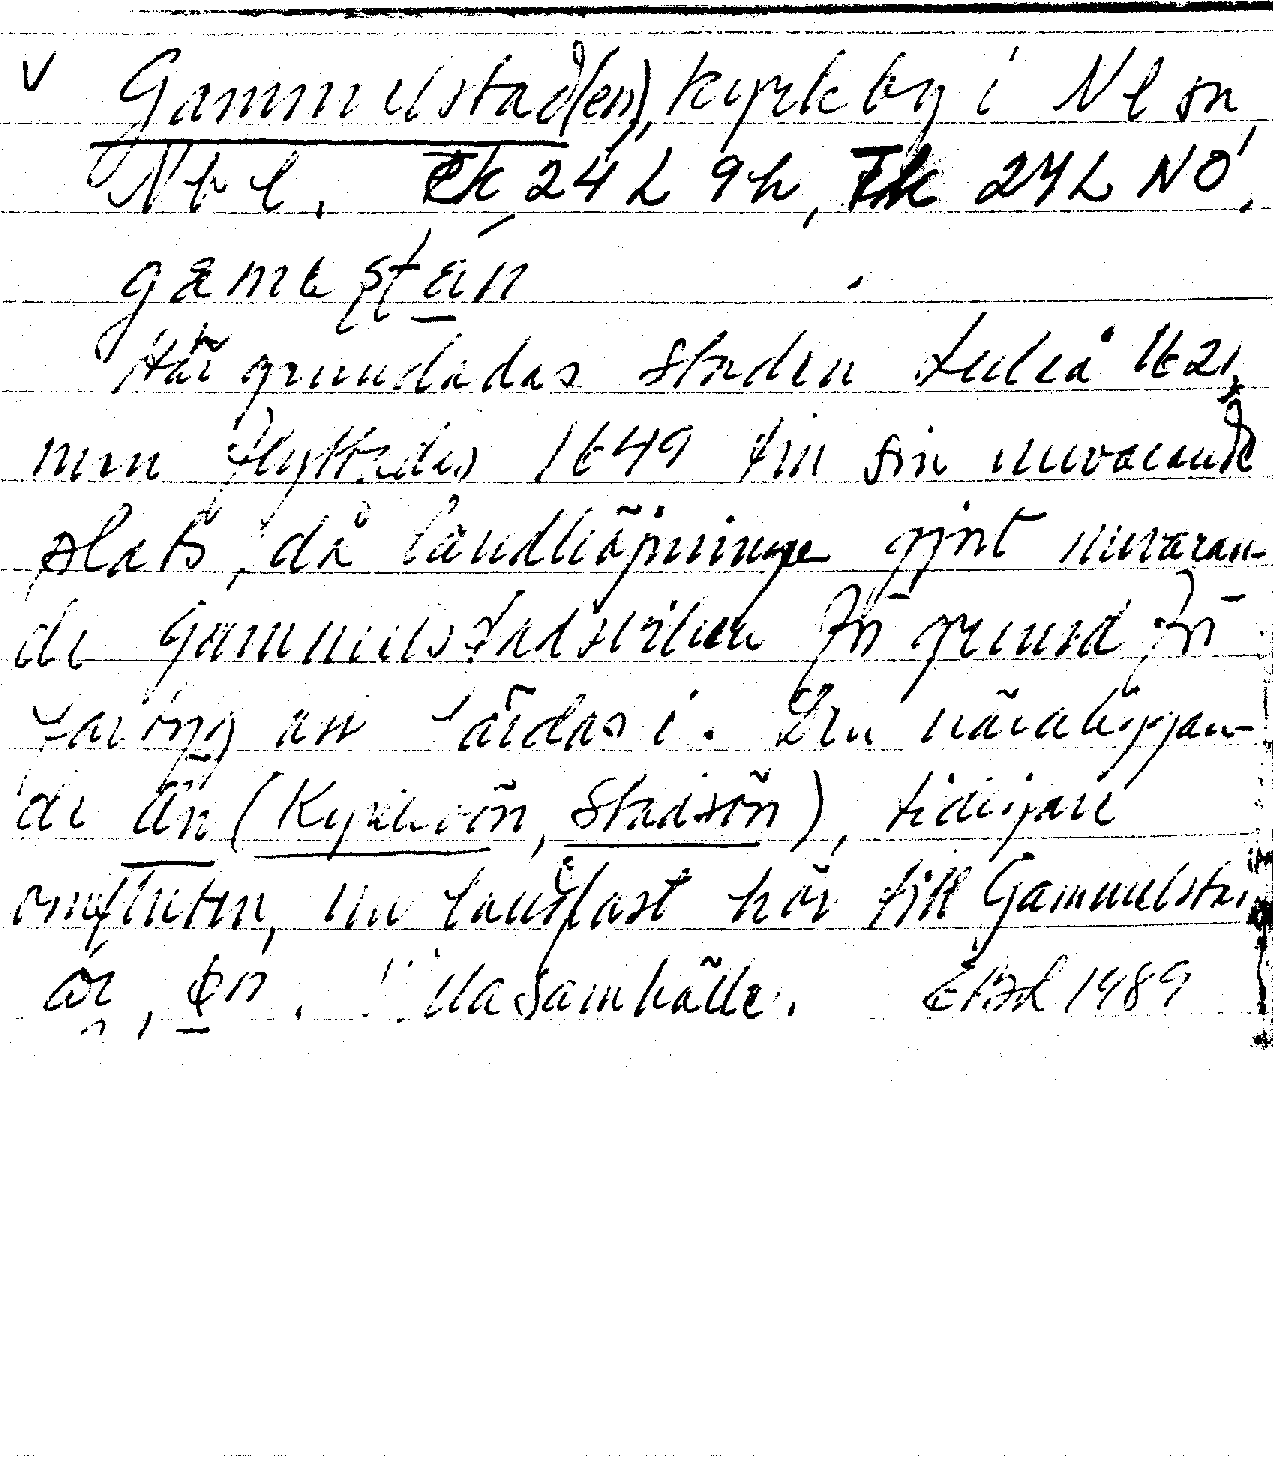 v Gammelstad(en), kyrkby i Nl sn,
Nbl. Ek 24 L 9h, Tk 24L NO.
Här grundades staden Luleå 1621,
men flyttades 1649 till sin nuvarande
plats, då landhöjningen gjort nuvaran-
de Gammelstadsviken för grund för
fartyg att färdas i. Den närabeläggan-
de ön (Kyrkoön, Stadsön), tidigare
omfluten, nu landfast hör till Gammelsta
samhälle. EBd 1989